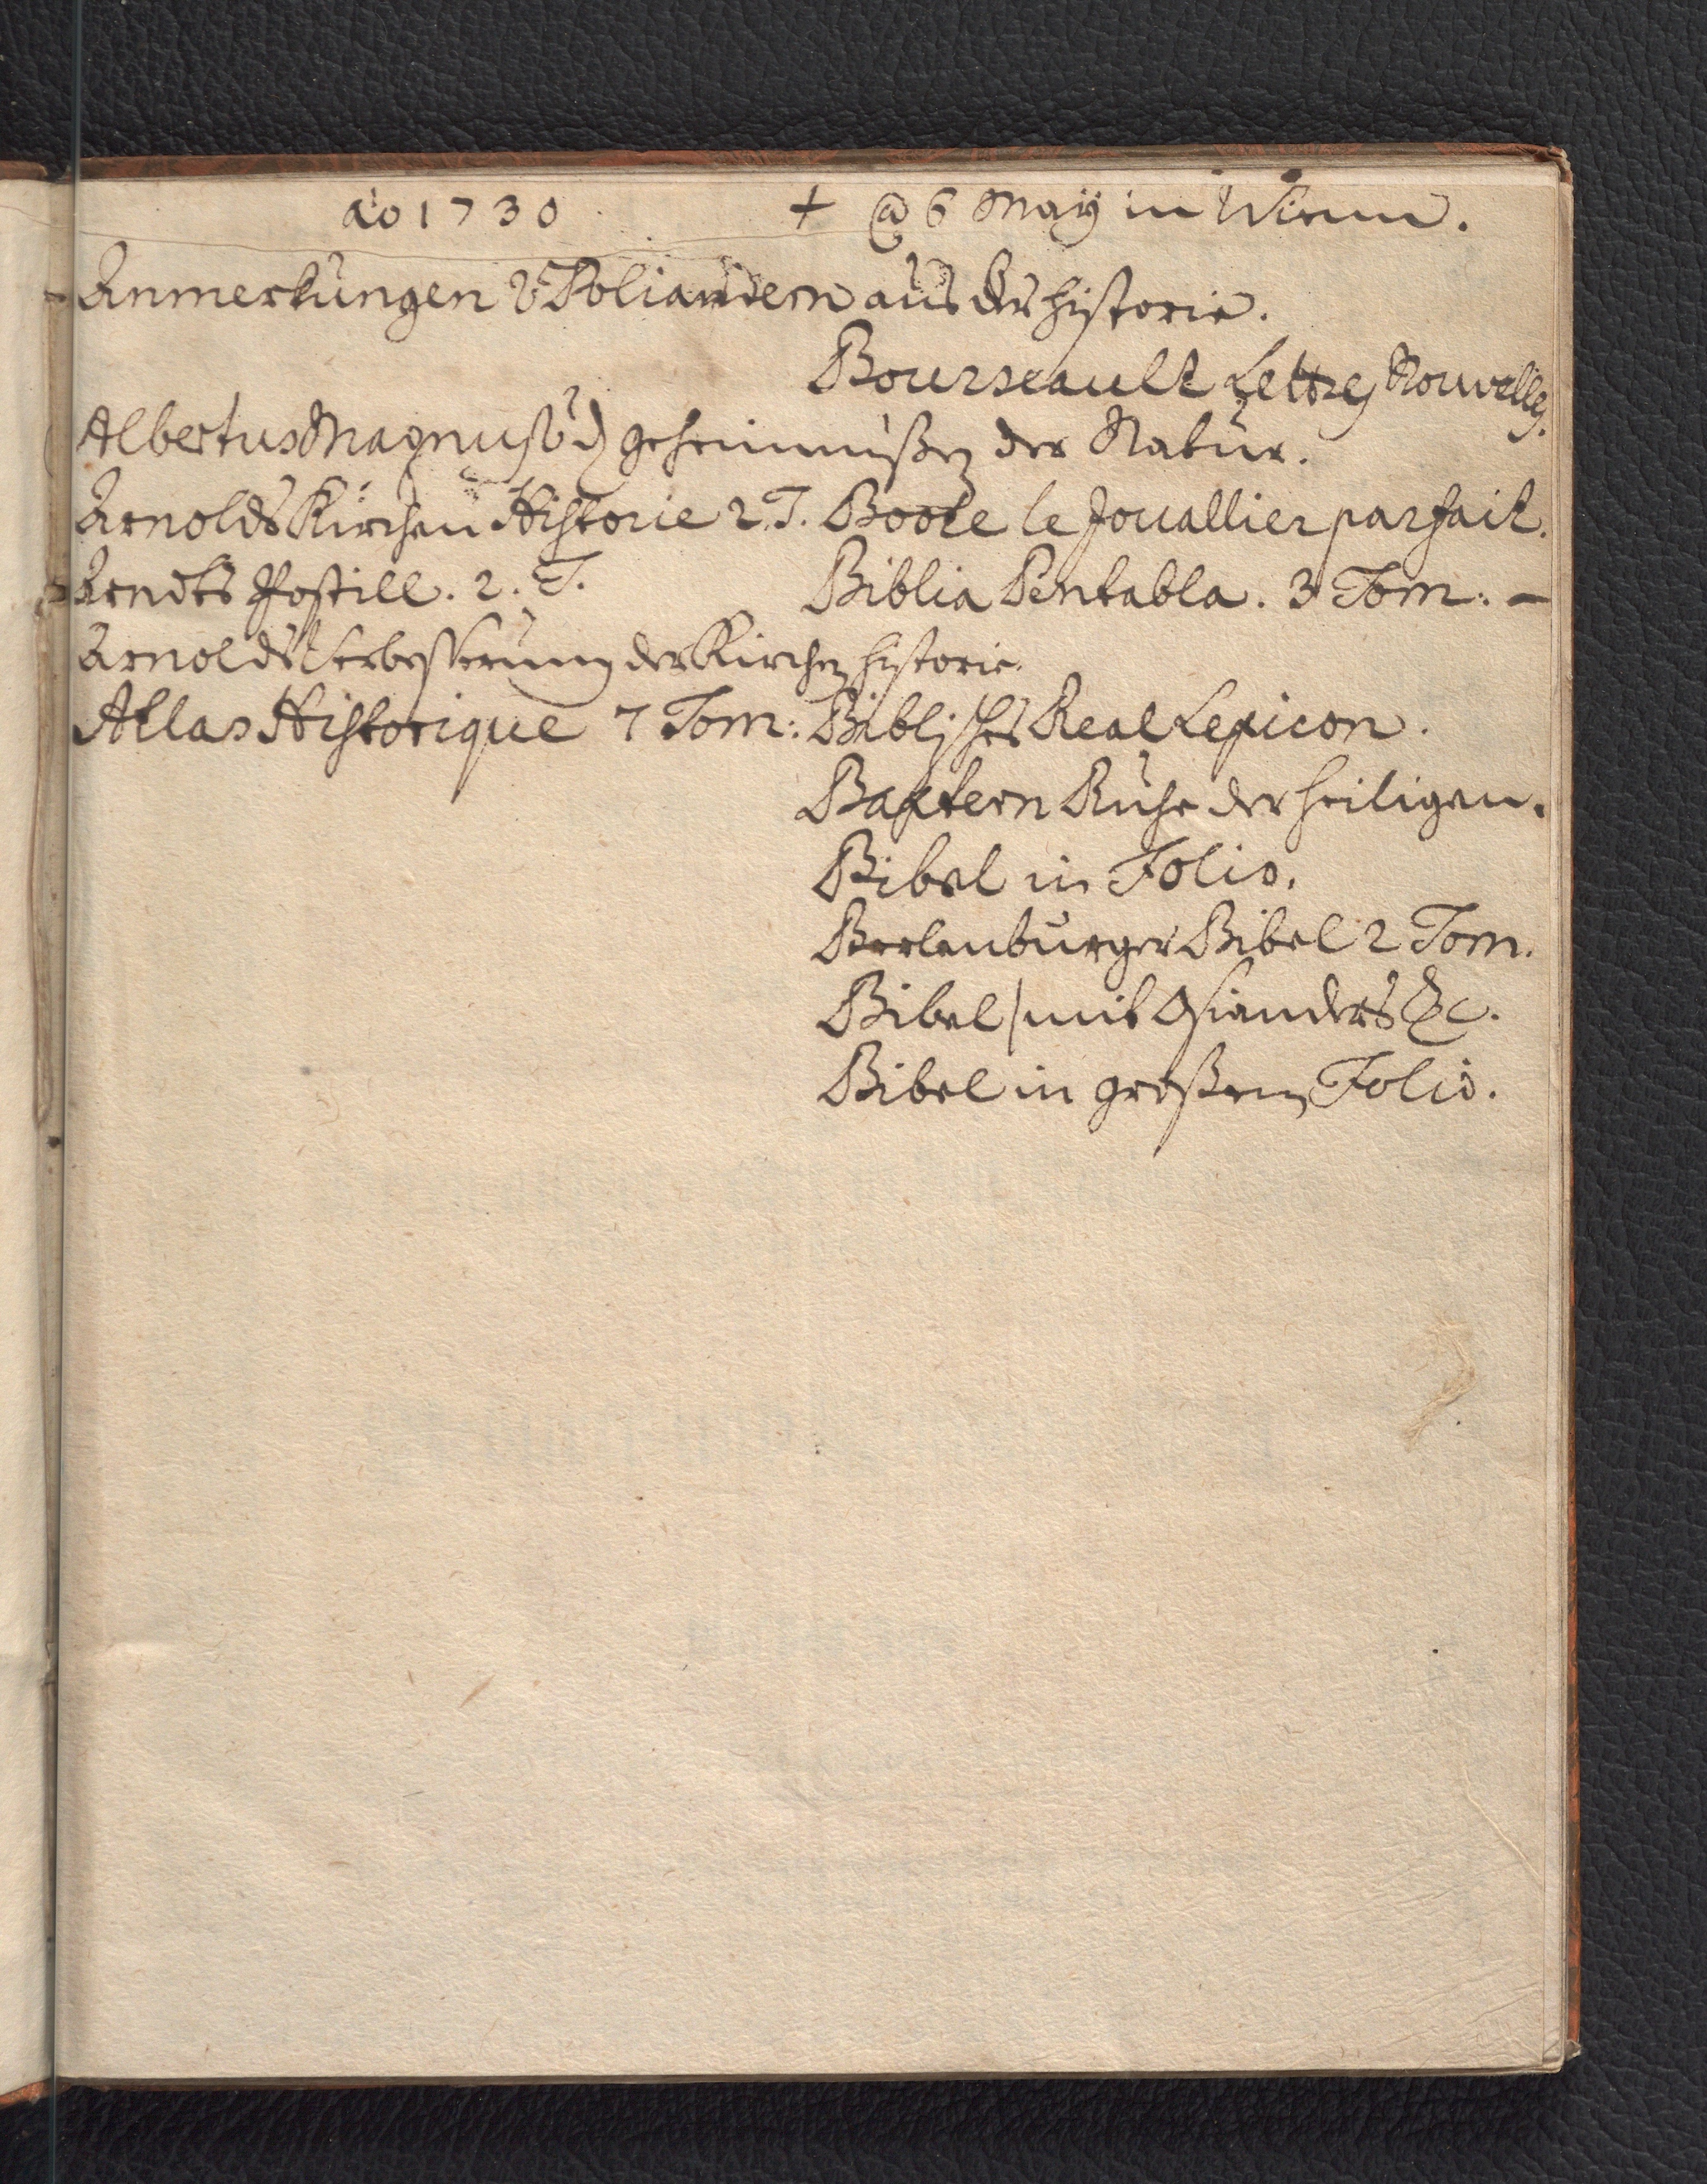 ao 1730 + @ 6 May in Wienn.
Anmerkungen v. Poliandern aus der Historie.
Bourseault Lettres Nouvelles.
Albertus Magnus v. d. geheimnußen der Natur.
Arnolds Kirchen Historie 2. T.
Boote le Jouallier parfait.
Arndts Postill. 2. T.
Biblia Pentabla. 3 Tom: -
Arnolds Verbesserung der Kirchen historie.
Atlas Historique 7 Tom:
Biblisches Real Lexicon.
Baxtern Ruhe der heiligen.
Bibel in Folio.
Berlenburger Bibel 2 Tom.
Bibel mit Osianders &c.
Bibel in großem Folio.